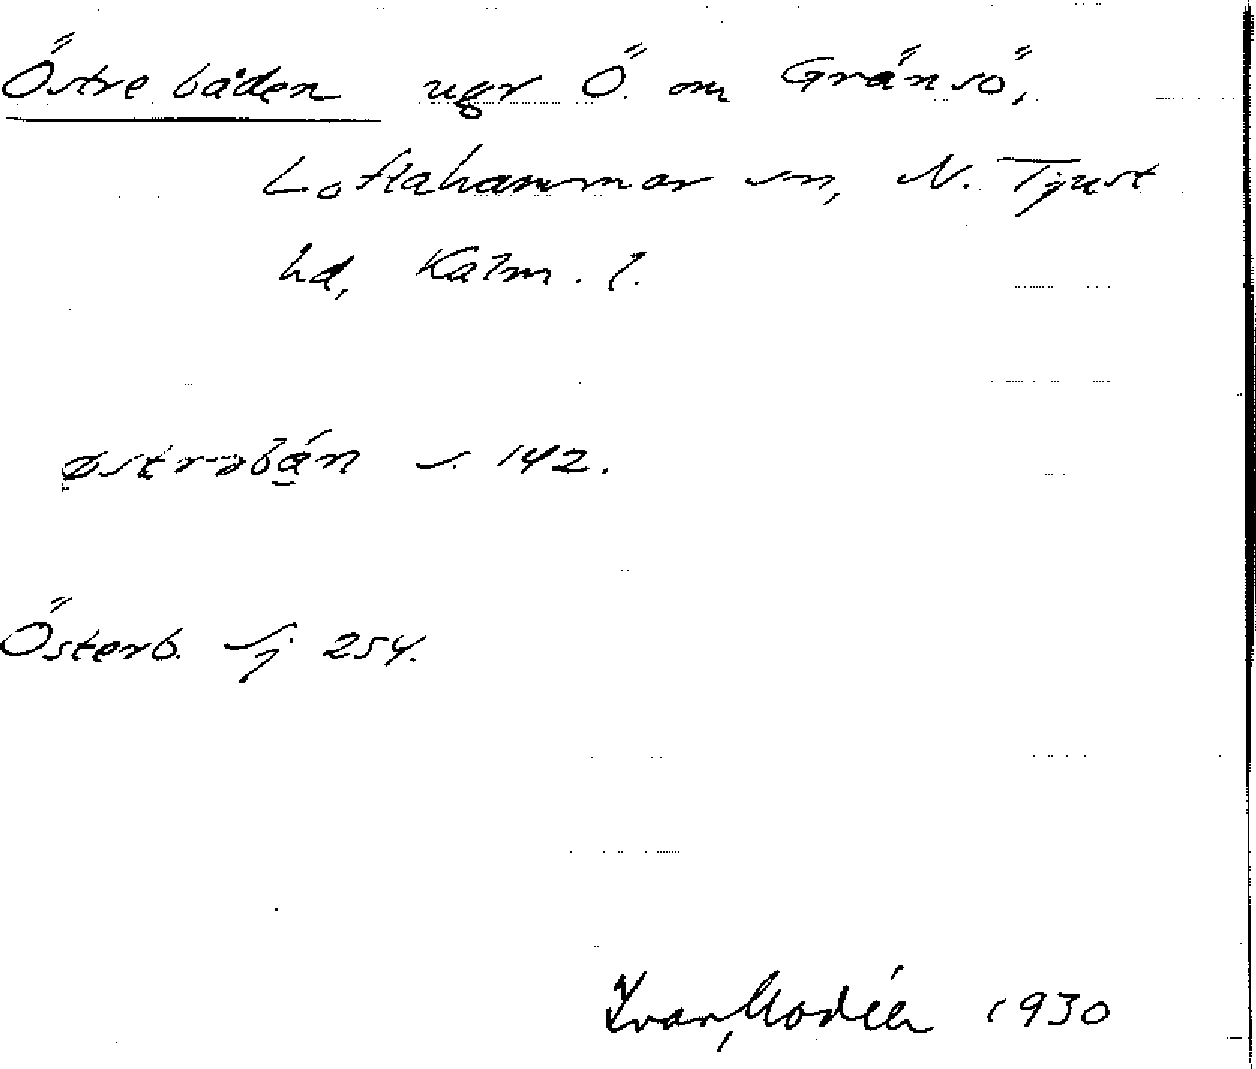 Östre båden ugr Ö. om Gränsö,
Loftahammar sn, N. Tjust
hd, Kalm. l.
østrəbån s. 142.
Österb. Sj 254.
Ivar Modéer 1930